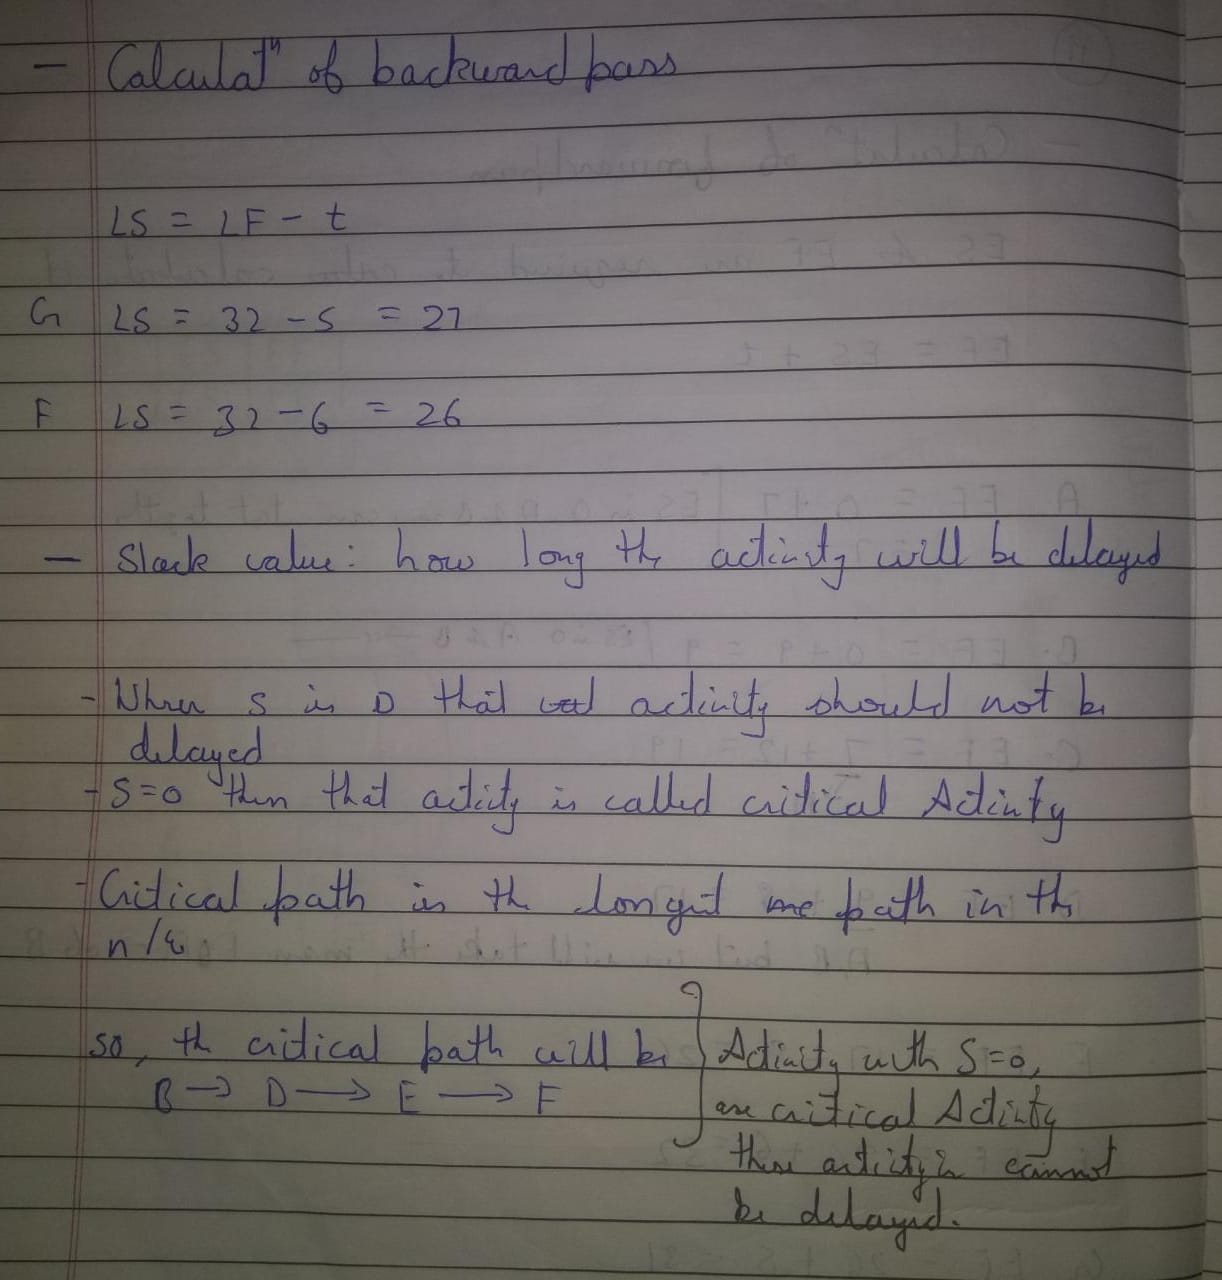 - Calculatⁿ of backward pass
LS = LF - t
G LS = 32 - 5 = 27
F LS = 32 - 6 = 26
- Slack value: how long the activity will be delayed
- When S is 0 that activity should not be
delayed
- S=0 then that activity is called critical Activity
- Critical path is the longest path in the
n/w
so, the critical path will be
B → D → E → F
Activity with S=0,
are critical Activity
these activity cannot
be delayed.